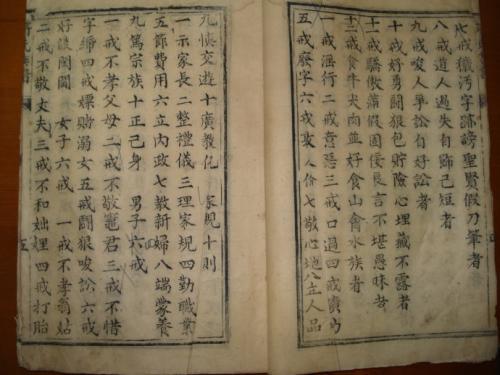 七戒穢污字跡謗聖賢假刀筆者
八戒道人過失自歸己短者
九戒唆人爭訟自好訟者
十戒好勇鬪狠包貯險心埋藏不露者
十一戒驕傲假固侵長言不堪愚昧者
十二戒食牛犬肉並好食山禽水族者
一戒淫行二戒意惡三戒口過四戒曠功
五戒廢字六戒人倫七敬心地八立人品
九慎交遊十廣教化 家規十則
一示家長二整禮儀三理家規四勤職業
五節費用六立內政七教新婦八端蒙養
九篤宗族十正己身 男子六戒
一戒不孝父母二戒不敬竈君三戒不惜
字紙四戒嫖賭溺女五戒鬪狠唆訟六戒
好談閨閫 女子六戒 一戒不孝翁姑
二戒不敬丈夫三戒不和妯娌四戒打胎